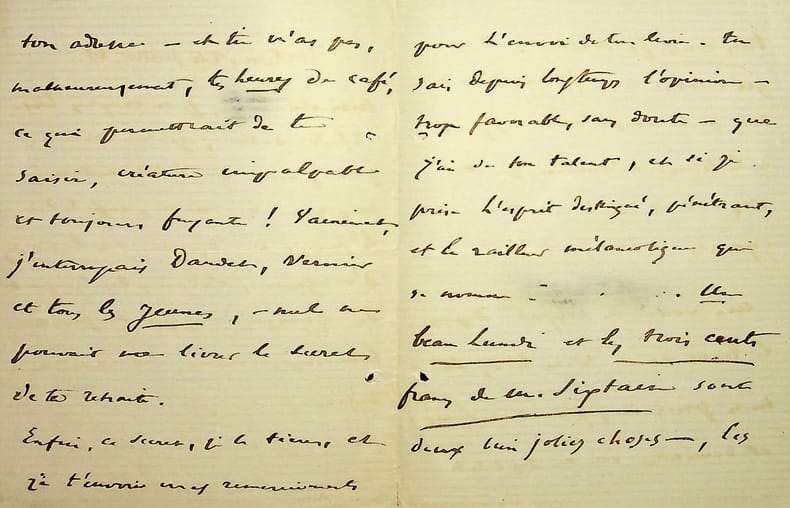 ton adresse — et tu n'as pas,
malheureusement, tes heures de café,
ce qui permettrait de te
saisir, créature impalpable
et toujours fuyante ! Vainement,
j'interrogeais Daudet, Vernier
et tous les jeunes, — nul ne
pouvait me livrer le secret
de ta retraite.
Enfin, ce secret, je le tiens, et
je t'envoie mes remerciements
pour l'envoi de ton livre. tu
sais depuis longtemps l'opinion —
trop favorable, sans doute — que
j'ai de ton talent, et si je
prise l'esprit distingué, pénétrant,
et le railleur mélancolique qui
se nomme . . . Un
beau Lundi et les trois cents
francs de M. 
sont
deux bien jolies choses —, les